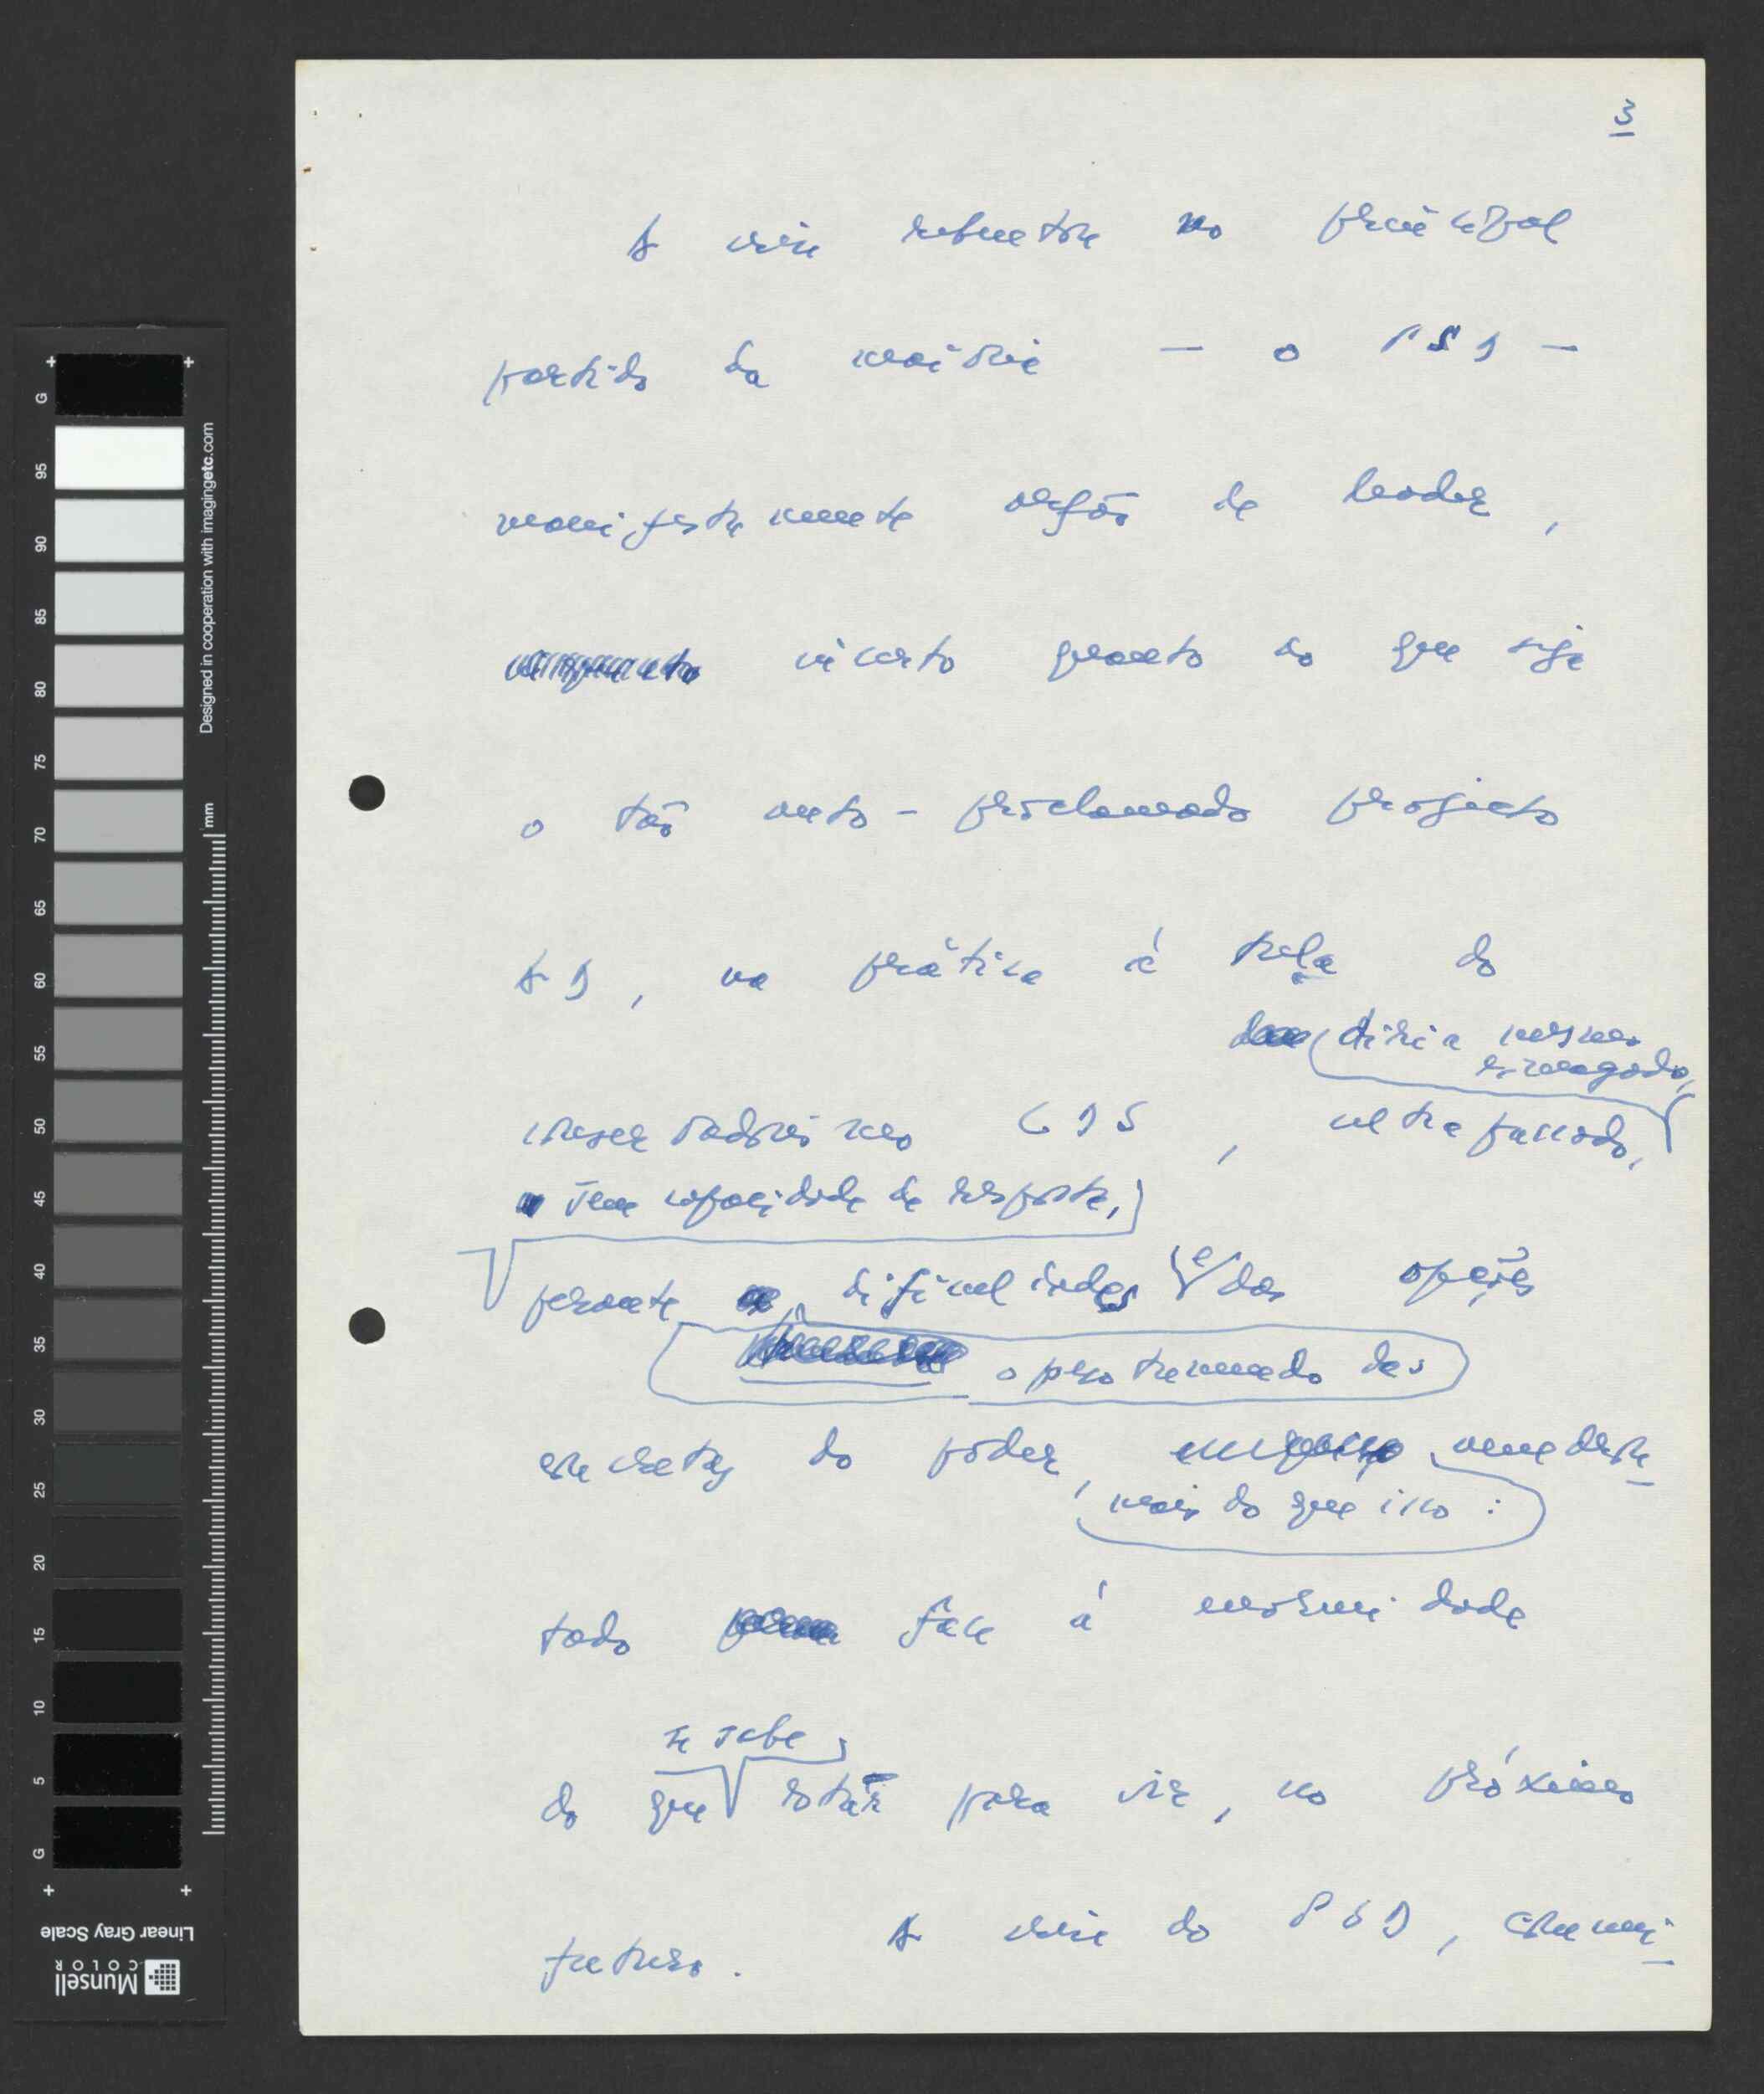 3
A crise rebentou no principal
partido da maioria — o PSD —
manifestamente orfão de leader,
incerto quanto ao que seja
o tão auto-proclamado projecto
AD, na prática à trela do
(diria mesmo
esmagado,
conservadorismo CDS, ultrapassado,
sem capacidade de resposta,
perante as dificuldades e das opções
o peso tremendo das
concretas do poder, amedron-
mais do que isso:
tado face à enormidade
se sabe
do que estar para vir, no próximo
futuro. A crise do PSD, cromi-
G 95 90 85 80 75 70 65 60 55 50 45 40 35 30 25 20 15 10 5 G
Designed in cooperation with imagingetc.com
mm
Linear Gray Scale
Munsell
COLOR